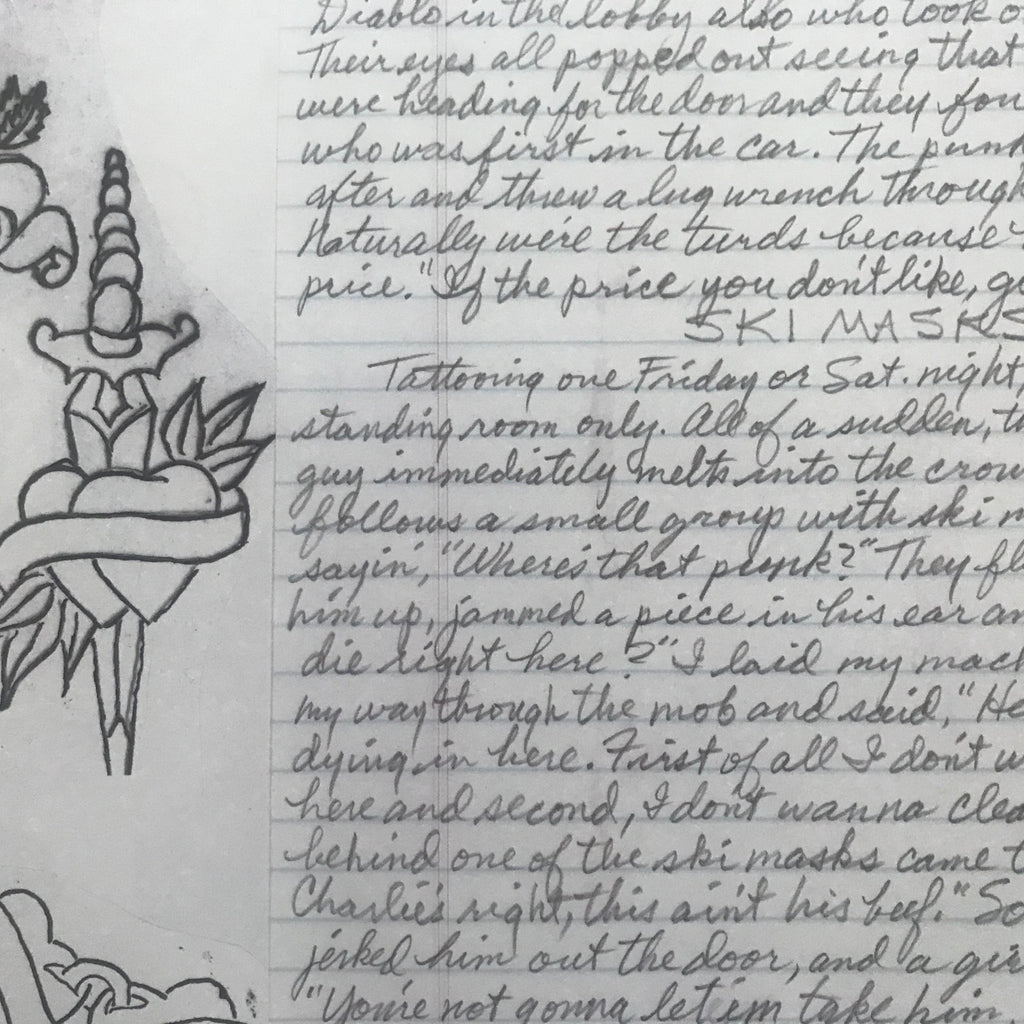 Diablo in the lobby also who took
Their eyes all popped out seeing that
were heading for the door and they
who was first in the car. The
after and threw a lug wrench through
Naturally we're the turds because
price." If the price you don't like,
SKI MASKS
Tattooing one Friday or Sat. night,
standing room only. All of a sudden,
guy immediately melts into the
follows a small group with ski
sayin', "Where's that punk?" They
him up, jammed a piece in his ear
die right here?" I laid my
my way through the mob and said,
dying in here. First of all I don't
here and second, I don't wanna
behind one of the ski masks came
Charlie's right, this ain't his beef."
jerked him out the door, and a
"You're not gonna let 'im take him